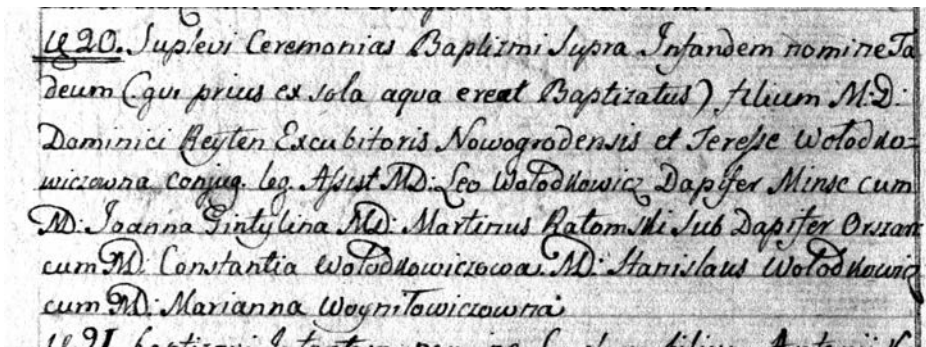 die 20. Suplevi Ceremonias Baptizmi Supra Infandem nomine Ta
deum (qui prius ex sola aqua ereat Baptizatus) filium M:D:
Dominici Reyten Excubitoris Nowogrodensis et Teresse Wołodko=
wiczowna conjug. leg. Assist MD: Leo Wołodkowicz Dapifer Minsc cum
MD: Joanna Gintylina MD: Martinus Ratomski Sub Dapifer Orszan
cum MD: Constantia Wołodkowiczowa MD: Stanislaus Wołodkowicz
cum MD: Marianna Woyniłowiczowna
21 baptizavi Infantem nomine filium Antonii